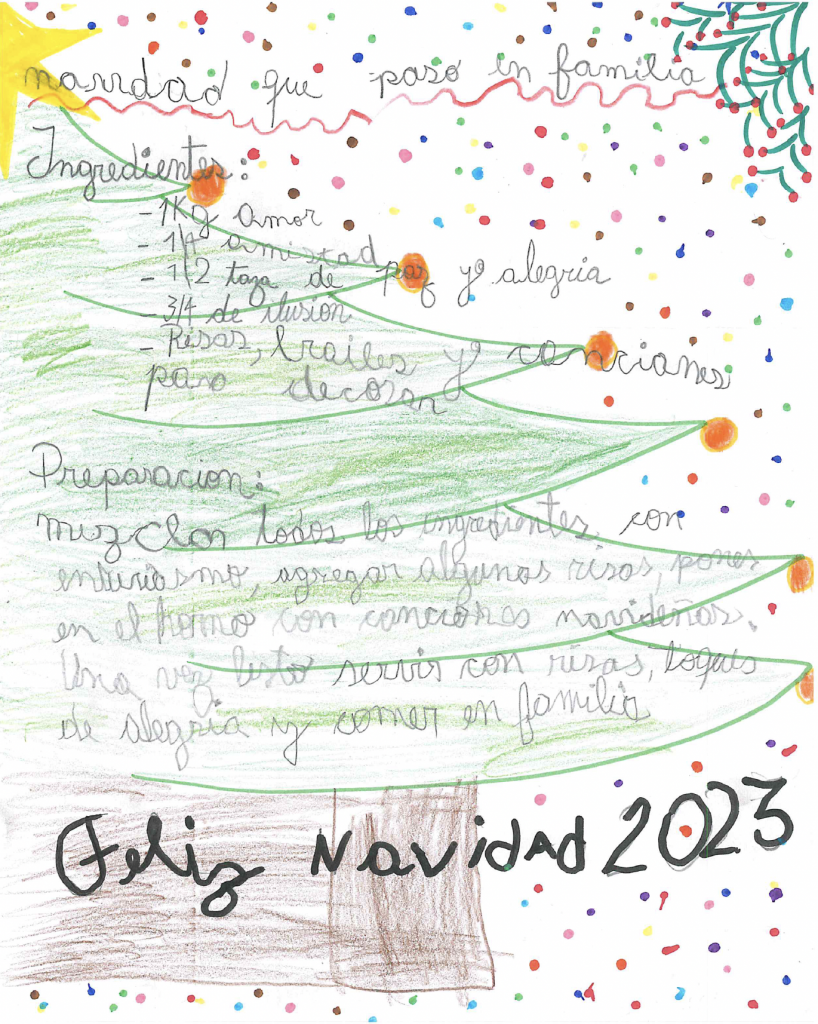 navidad que paso en familia
Ingredientes:
- 1Kg amor
- 1/4 amistad
- 1/2 taza de paz y alegria
- 3/4 de ilusion
- Risas, bailes y canciones
para decorar
Preparacion:
mezclar todos los ingredientes con
enturiasmo, agregar algunas risas, poner
en el horno con canciones navideñas.
Una vez listo servir con risas, toques
de alegria y comer en familia
Feliz Navidad 2023